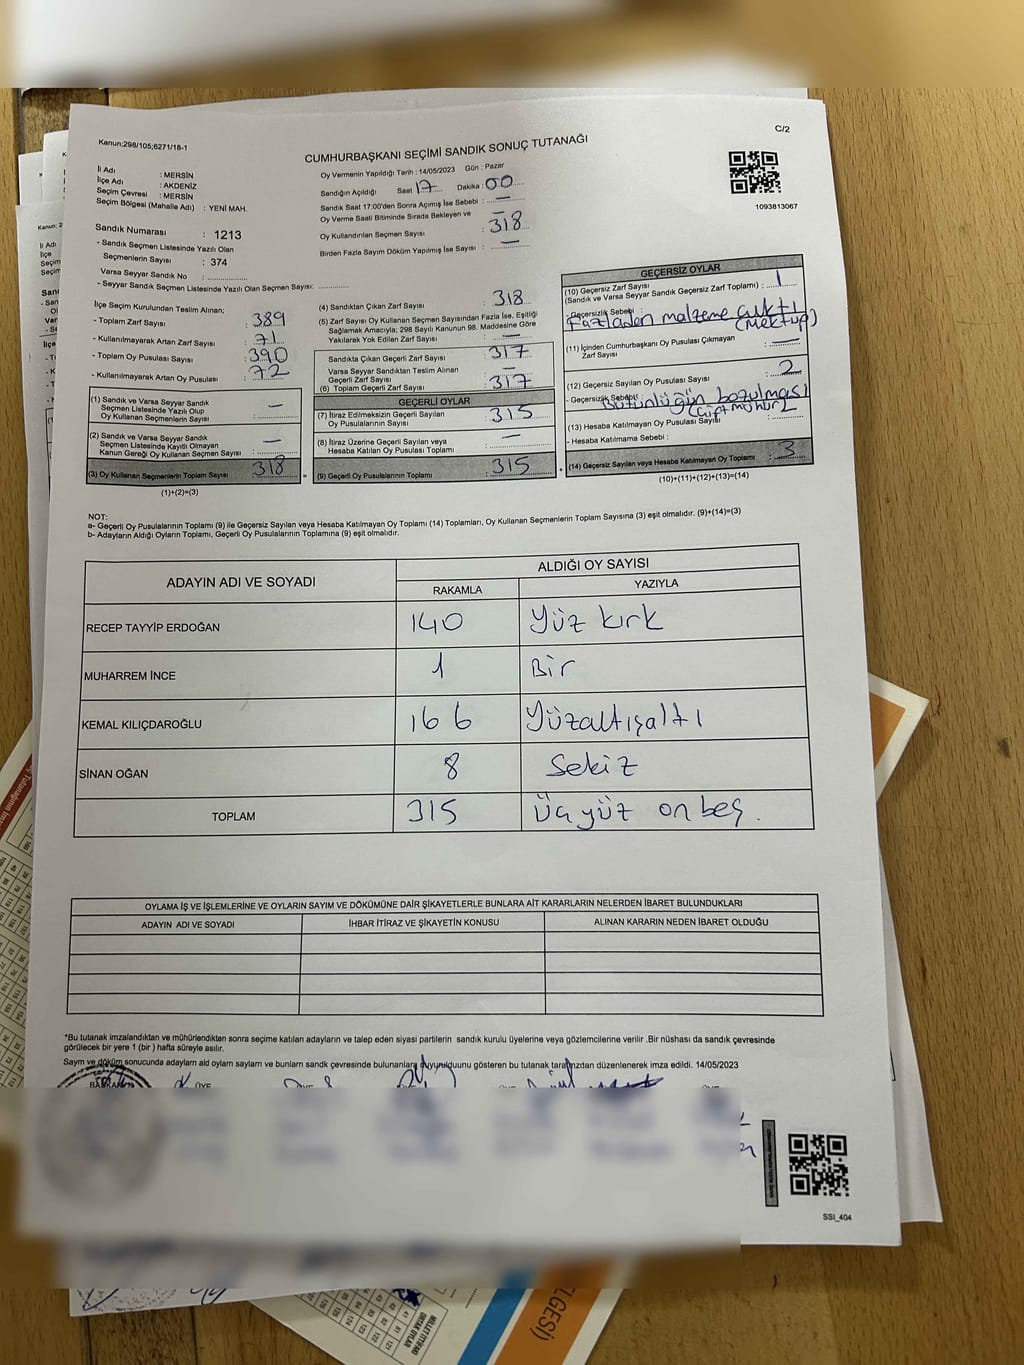 C/2
Kanun;298/105;6271/18-1
CUMHURBAŞKANI SEÇİMİ SANDIK SONUÇ TUTANAĞI
1093813067
İl Adı : MERSİN
İlçe Adı : AKDENİZ
Seçim Çevresi : MERSİN
Seçim Bölgesi (Mahalle Adı) : YENİ MAH.
Sandık Numarası : 1213
- Sandık Seçmen Listesinde Yazılı Olan
Seçmenlerin Sayısı : 374
Varsa Seyyar Sandık No :
- Seyyar Sandık Seçmen Listesinde Yazılı Olan Seçmen Sayısı:
Oy Vermenin Yapıldığı Tarih : 14/05/2023 Gün : Pazar
Sandığın Açıldığı Saat 17 Dakika 00
Sandık Saat 17:00'den Sonra Açımış İse Sebebi : —
Oy Verme Saati Bitiminde Sırada Bekleyen ve
Oy Kullandırılan Seçmen Sayısı : 318
Birden Fazla Sayım Döküm Yapılmış İse Sayısı : —
İlçe Seçim Kurulundan Teslim Alınan;
- Toplam Zarf Sayısı : 389
- Kullanılmayarak Artan Zarf Sayısı : 71
- Toplam Oy Pusulası Sayısı : 390
- Kullanılmayarak Artan Oy Pusulası : 72
(1) Sandık ve Varsa Seyyar Sandık
Seçmen Listesinde Yazılı Olup
Oy Kullanan Seçmenlerin Sayısı : —
(2) Sandık ve Varsa Seyyar Sandık
Seçmen Listesinde Kayıtlı Olmayan
Kanun Gereği Oy Kullanan Seçmen Sayısı : —
(3) Oy Kullanan Seçmenlerin Toplam Sayısı : 318
(1)+(2)=(3)
(4) Sandıktan Çıkan Zarf Sayısı : 318
(5) Zarf Sayısı Oy Kullanan Seçmen Sayısından Fazla İse, Eşitliği
Sağlamak Amacıyla; 298 Sayılı Kanunun 98. Maddesine Göre
Yakılarak Yok Edilen Zarf Sayısı : —
Sandıkta Çıkan Geçerli Zarf Sayısı : 317
Varsa Seyyar Sandıktan Teslim Alınan
Geçerli Zarf Sayısı : —
(6) Toplam Geçerli Zarf Sayısı : 317
GEÇERLİ OYLAR
(7) İtiraz Edilmeksizin Geçerli Sayılan
Oy Pusulalarının Sayısı : 315
(8) İtiraz Üzerine Geçerli Sayılan veya
Hesaba Katılan Oy Pusulası Toplamı : —
= (9) Geçerli Oy Pusulalarının Toplamı : 315 +
GEÇERSİZ OYLAR
(10) Geçersiz Zarf Sayısı : 1
(Sandık ve Varsa Seyyar Sandık Geçersiz Zarf Toplamı)
- Geçersizlik Sebebi :
Fazladan malzeme çıktı
(Mektup)
(11) İçinden Cumhurbaşkanı Oy Pusulası Çıkmayan
Zarf Sayısı : —
(12) Geçersiz Sayılan Oy Pusulası Sayısı : 2
- Geçersizlik Sebebi : Bütünlüğün bozulması
(Çift mühür)
(13) Hesaba Katılmayan Oy Pusulası Sayısı :
- Hesaba Katılmama Sebebi :
(14) Geçersiz Sayılan veya Hesaba Katılmayan Oy Toplamı : 3
(10)+(11)+(12)+(13)=(14)
NOT:
a- Geçerli Oy Pusulalarının Toplamı (9) ile Geçersiz Sayılan veya Hesaba Katılmayan Oy Toplamı (14) Toplamları, Oy Kullanan Seçmenlerin Toplam Sayısına (3) eşit olmalıdır. (9)+(14)=(3)
b- Adayların Aldığı Oyların Toplamı, Geçerli Oy Pusulalarının Toplamına (9) eşit olmalıdır.
ADAYIN ADI VE SOYADI ALDIĞI OY SAYISI
RAKAMLA YAZIYLA
RECEP TAYYİP ERDOĞAN 140 Yüz kırk
MUHARREM İNCE 1 Bir
KEMAL KILIÇDAROĞLU 166 Yüzaltışaltı
SİNAN OĞAN 8 Sekiz
TOPLAM 315 Üç yüz on beş.
OYLAMA İŞ VE İŞLEMLERİNE VE OYLARIN SAYIM VE DÖKÜMÜNE DAİR ŞİKAYETLERLE BUNLARA AİT KARARLARIN NELERDEN İBARET BULUNDUKLARI
ADAYIN ADI VE SOYADI İHBAR İTİRAZ VE ŞİKAYETİN KONUSU ALINAN KARARIN NEDEN İBARET OLDUĞU
*Bu tutanak imzalandıktan ve mühürlendikten sonra seçime katılan adayların ve talep eden siyasi partilerin sandık kurulu üyelerine veya gözlemcilerine verilir .Bir nüshası da sandık çevresinde
görülecek bir yere 1 (bir ) hafta süreyle asılır.
Sayım ve döküm sonucunda adayların ald oyların sayların ve bunların sandk çevresinde bulunanlara duyurulduunu gösteren bu tutanak tarafınzdan düzenlenerek imza edildi. 14/05/2023
BAŞKAN ÜYE
SSI_404
MİLLET İTTİFAKI
ORTAK OYLAR
LGESİ)